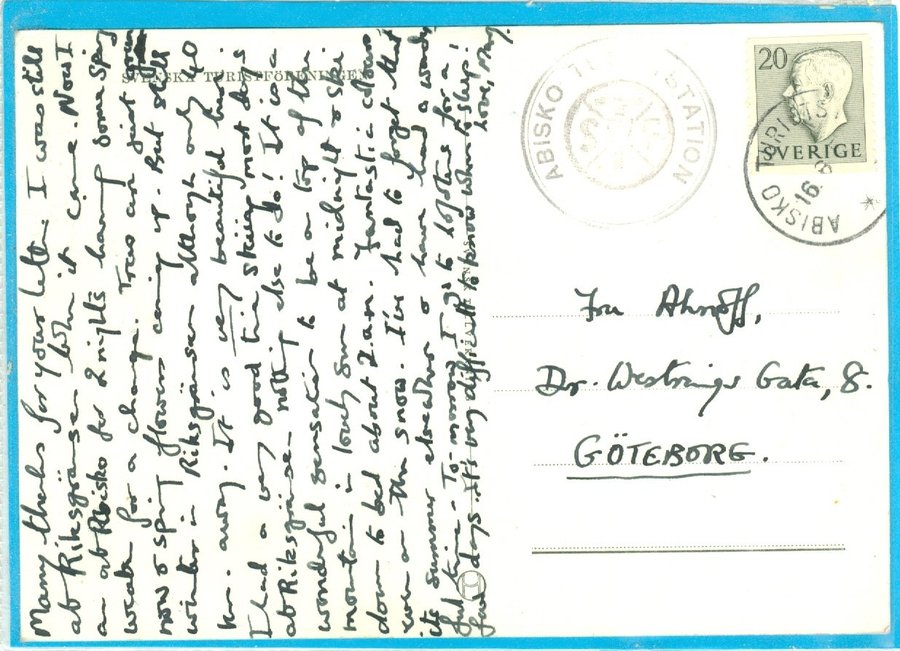 Many thanks for your letter. I was still
at Riksgränsen when it came. Now I
am at Abisko for 2 nights having some Spring
weather for a change. Trees are just green
now & spring flowers coming up. But still
winter in Riksgränsen although only 40
km. away. It is very beautiful here.
I had a very good time skiing most days
at Riksgränsen - nothing else to do! It is a
wonderful sensation to be on top of the
mountain in lovely sun at midnight & ski
down to bed about 2 a.m. Fantastic colours
even on the snow. I've had to forget that
its summer elsewhere & have had a wonder-
ful time. To-morrow I go to Lofoten for a
few days. It's very difficult to know when to sleep!
love,
SVENSKA TURISTFÖRENINGEN
ABISKO TURISTSTATION
20
SVERIGE
ABISKO TURIST
16
Fru Ahnoff,
Dr. Westrings Gata, 8.
GÖTEBORG.